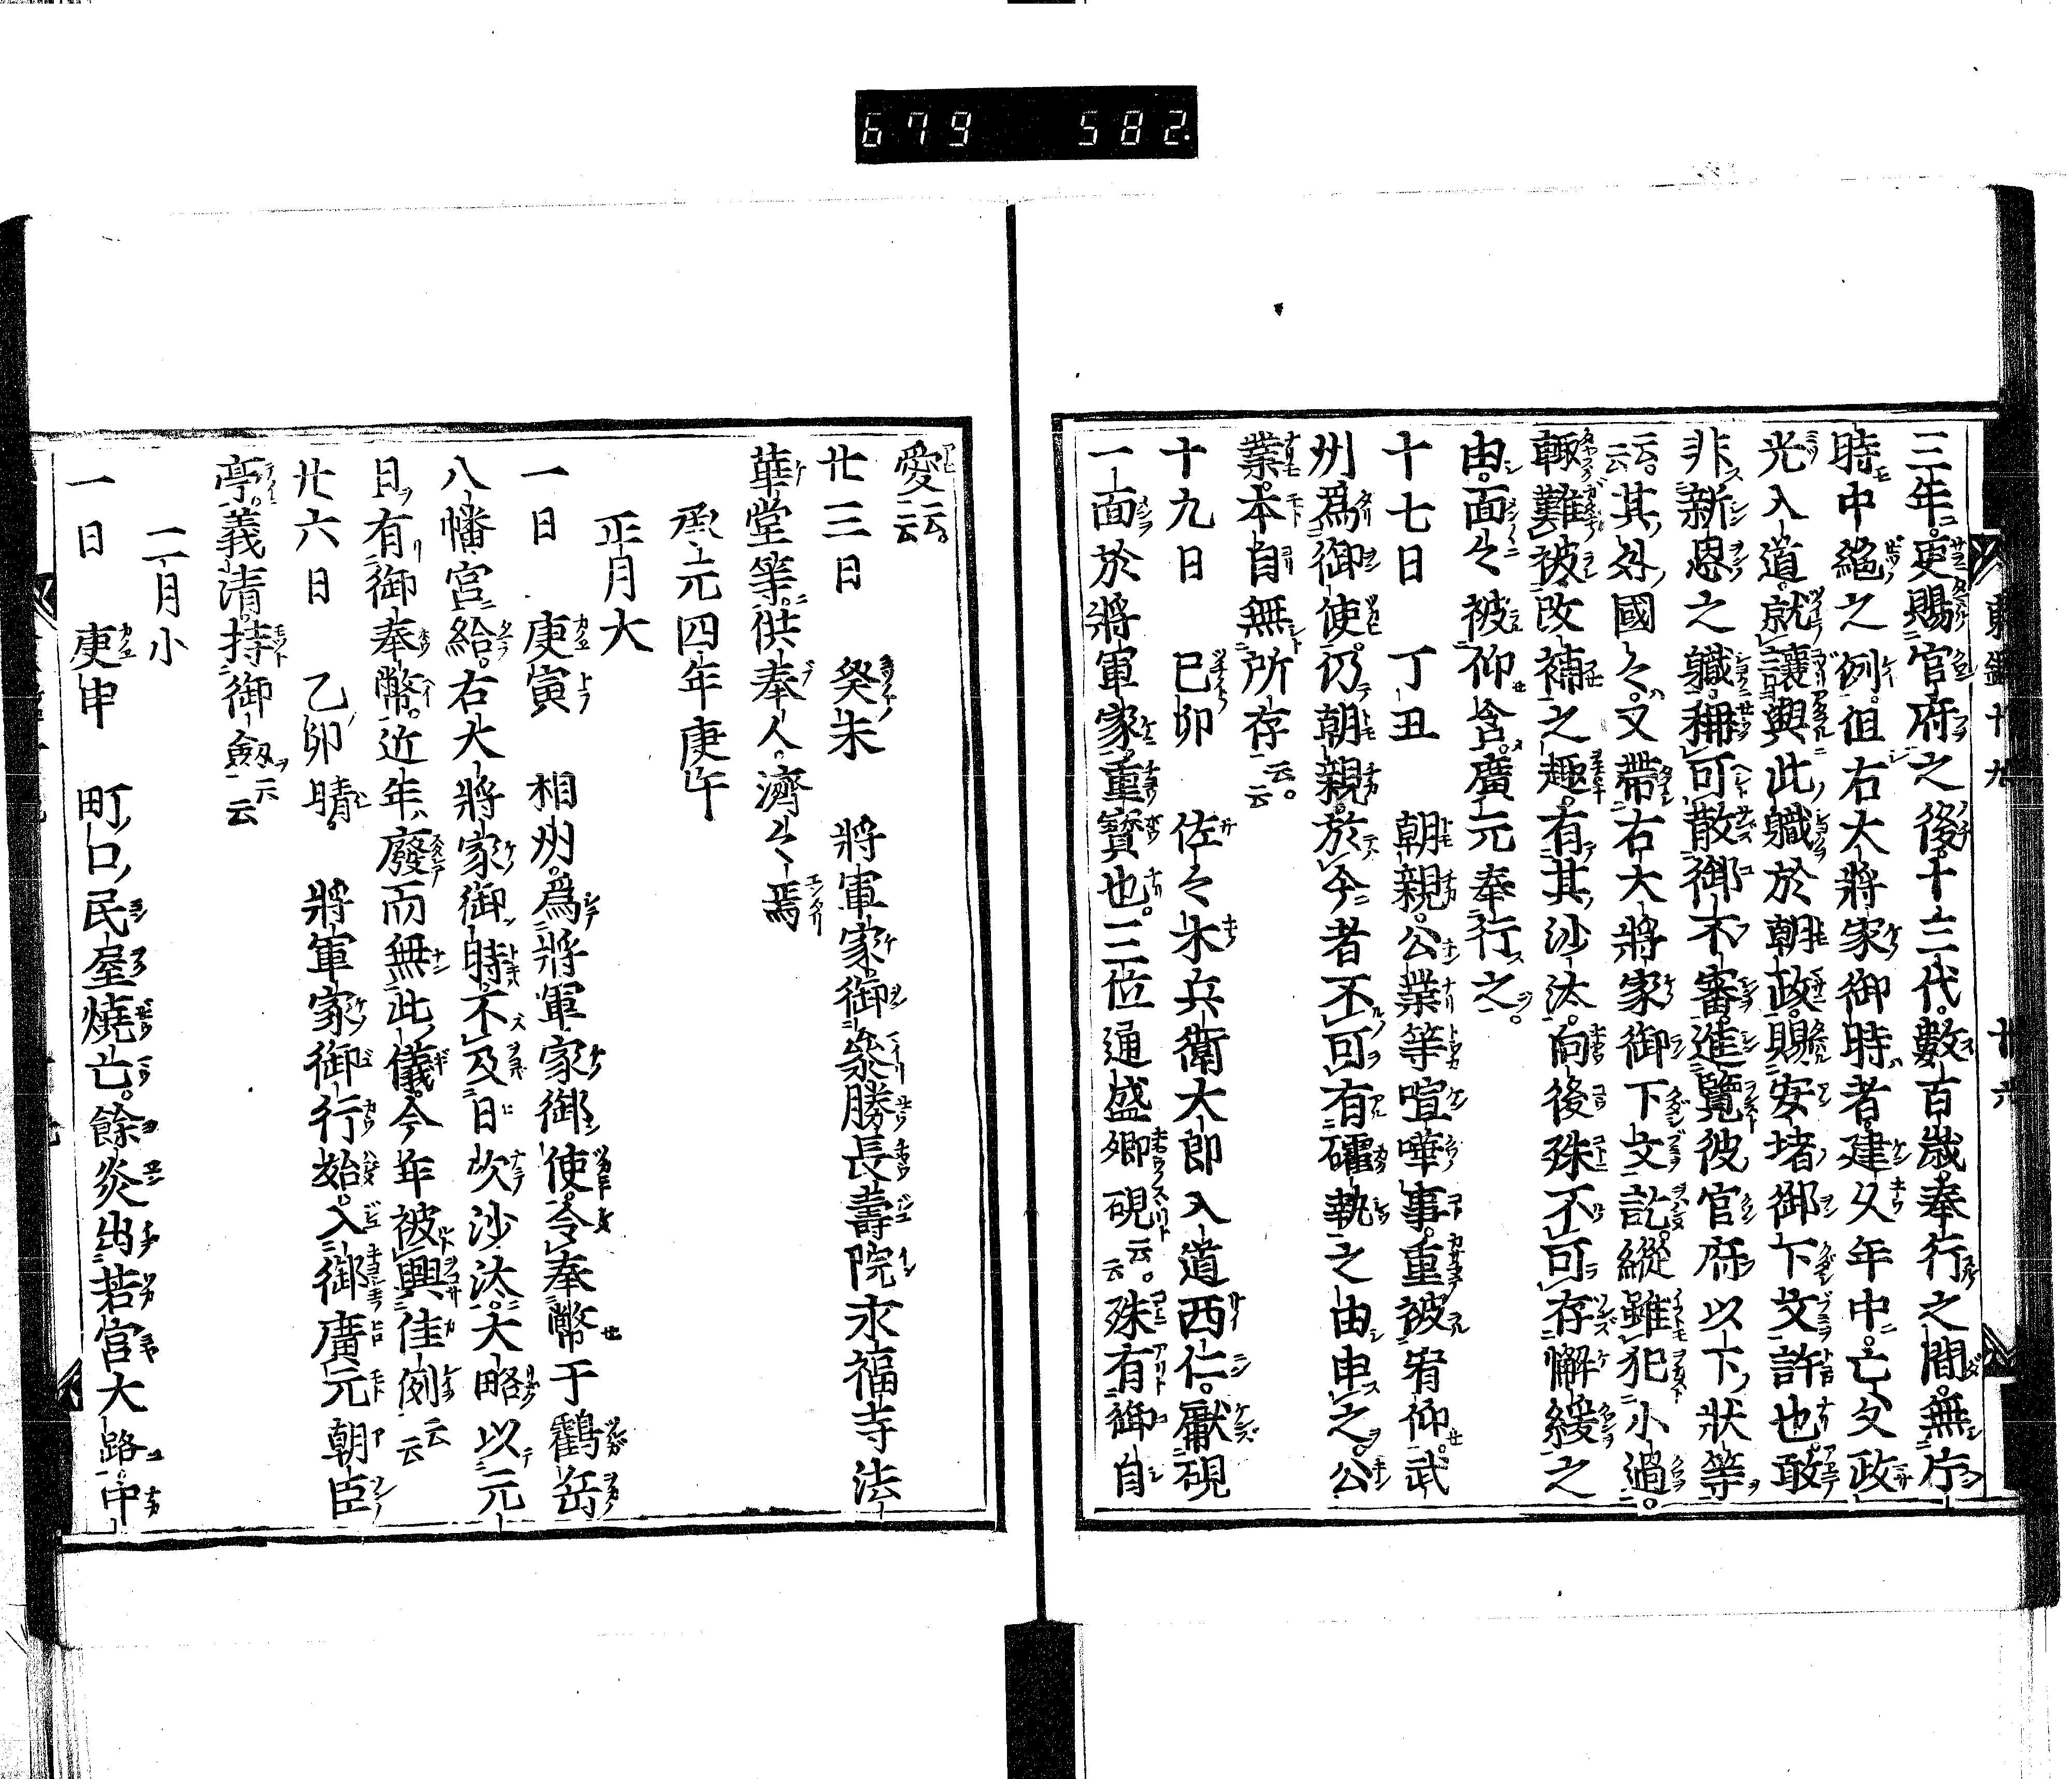 679 582.
三年。更賜官府之後。十三代。數百歳。奉行之間。無片
時中絶之例。徂右大將家御時者。建久年中。亡父政
光入道。就讓與此職於朝政。賜安堵御下文許也。敢
非新恩之職。稱可散御不審。進覽彼官府以下狀等
云云。其外國々。又帶右大將家御下文訖。縱雖犯小過。
輙難被改補之趣。有其沙汰。向後殊不可存懈緩之
由。面々被仰含。廣元奉行之。
十七日 丁丑 朝親。公業等喧嘩事。重被宥仰。武
州爲御使。仍朝親。於今者不可有確執之由申之。公
業。本自無所存云云。
十九日 己卯 佐々木兵衛大郎入道西仁。獻硯
一面於將軍家。重寳也。三位通盛卿硯云云。殊有御自
愛云云。
廿三日 癸未 將軍家御參勝長壽院永福寺法
華堂等。供奉人。濟々焉
承元四年庚午
正月大
一日 庚寅 相州。爲將軍家御使。令奉幣于鶴岳
八幡宮給。右大將家御時。不及日次沙汰。大略以元
日有御奉幣。近年廢而無此儀。今年被興佳例云云
廿六日 乙卯晴。 將軍家御行始。入御廣元朝臣
亭。義清。持御劔云云
二月小
一日 庚申 町口民屋燒亡。餘炎出若宮大路。中